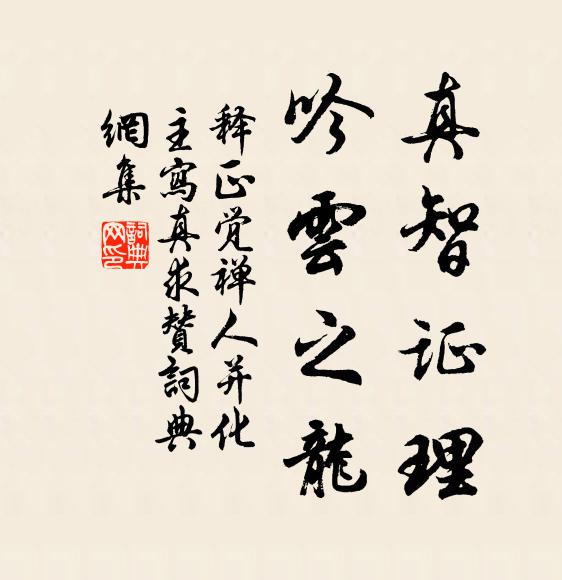 真智证理
吟雲之龍
释正觉禅人并化
主寫真求贊詞典
網集
詞典网印